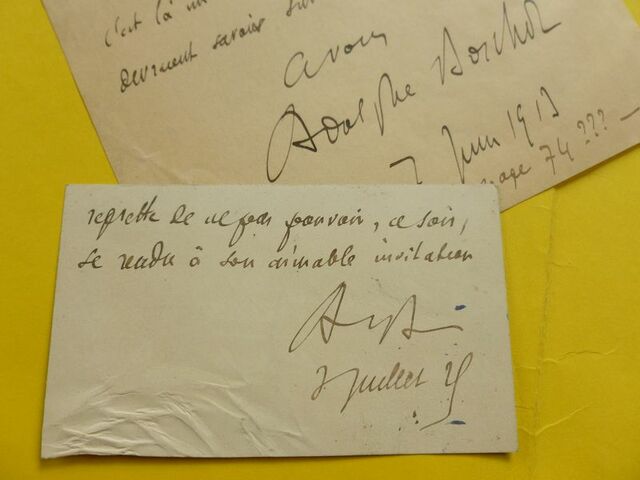 c'est là un
devraient savoir sur
avou
Adolphe Boschot
7 Juin 1913
page 74 ???
regrette de ne pas pouvoir, ce soir,
se rendre à son aimable invitation
Juillet 25